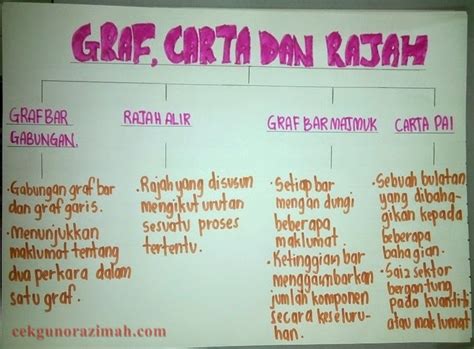 GRAF, CARTA DAN RAJAH
GRAF BAR
GABUNGAN.
• Gabungan graf bar
dan graf garis.
• Menunjukkan
maklumat tentang
dua perkara dalam
satu graf.
RAJAH ALIR
• Rajah yang disusun
mengikut urutan
sesuatu proses
tertentu.
GRAF BAR MAJMUK
• Setiap bar
mengandungi
beberapa
maklumat
• Ketinggian bar
menggambarkan
jumlah komponen
secara keseluru-
han.
CARTA PAI
• Sebuah bulatan
yang dibaha-
gikan kepada
beberapa
bahagian.
• Saiz sektor
bergantung
pada kuantiti
atau maklumat
cekgunorazimah.com